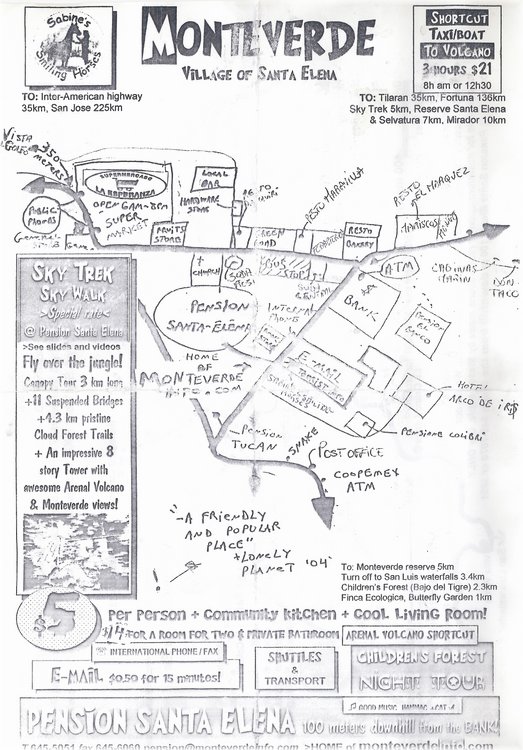 Sabine's
Smiling Horses
MONTEVERDE
VILLAGE OF SANTA ELENA
SHORTCUT
TAXI/BOAT
TO VOLCANO
3 HOURS $21
8h am or 12h30
TO: Inter-American highway
35km, San Jose 225km
TO: Tilaran 35km, Fortuna 136km
Sky Trek 5km, Reserve Santa Elena
& Selvatura 7km, Mirador 10km
VISTA
GOLFO
350
METERS
SUPERMERCADO
LA ESPERANZA
OPEN 6AM-8PM
SUPER
MARKET
LOCAL
BAR
HARDWARE
STORE
PUBLIC
PHONES
FRUITS
STORE
RESTO MARAVILLA
RESTO
EL MARQUEZ
RESTO
BAKERY
CHURCH
BUS
STOP
ATM
CABINAS
MARIN
DON
TACO
BANK
PENSION
SANTA-ELENA
INTERNATIONAL
PHONE
HOME
OF
MONTEVERDE
INFO.COM
E-MAIL
HOTEL
ARCO DE IRIS
PENSIONE COLIBRI
PENSION
TUCAN
SNAKE
POST OFFICE
COOPEMEX
ATM
"-A FRIENDLY
AND POPULAR
PLACE"
+LONELY
PLANET '04
!
SKY TREK
SKY WALK
>Special rate<
@ Pension Santa Elena
>See slides and videos
Fly over the jungle!
Canopy Tour 3 km long
+11 Suspended Bridges
+4.3 km pristine
Cloud Forest Trails
+ An impressive 8
story Tower with
awesome Arenal Volcano
& Monteverde views!
To: Monteverde reserve 5km
Turn off to San Luis waterfalls 3.4km
Children's Forest (Bajo del Tigre) 2.3km
Finca Ecologica, Butterfly Garden 1km
$5
per person + Community kitchen + Cool Living Room!
$14 FOR A ROOM FOR TWO & PRIVATE BATHROOM
ARENAL VOLCANO SHORTCUT
INTERNATIONAL PHONE / FAX
E-MAIL $0.50 for 15 minutes!
SHUTTLES
&
TRANSPORT
CHILDREN'S FOREST
NIGHT TOUR
GOOD MUSIC
PENSION SANTA ELENA 100 meters downhill from the BANK!
T 645-5051 fax 645-6060 pension@monteverdeinfo.com >HOME of monteverdeinfo.com